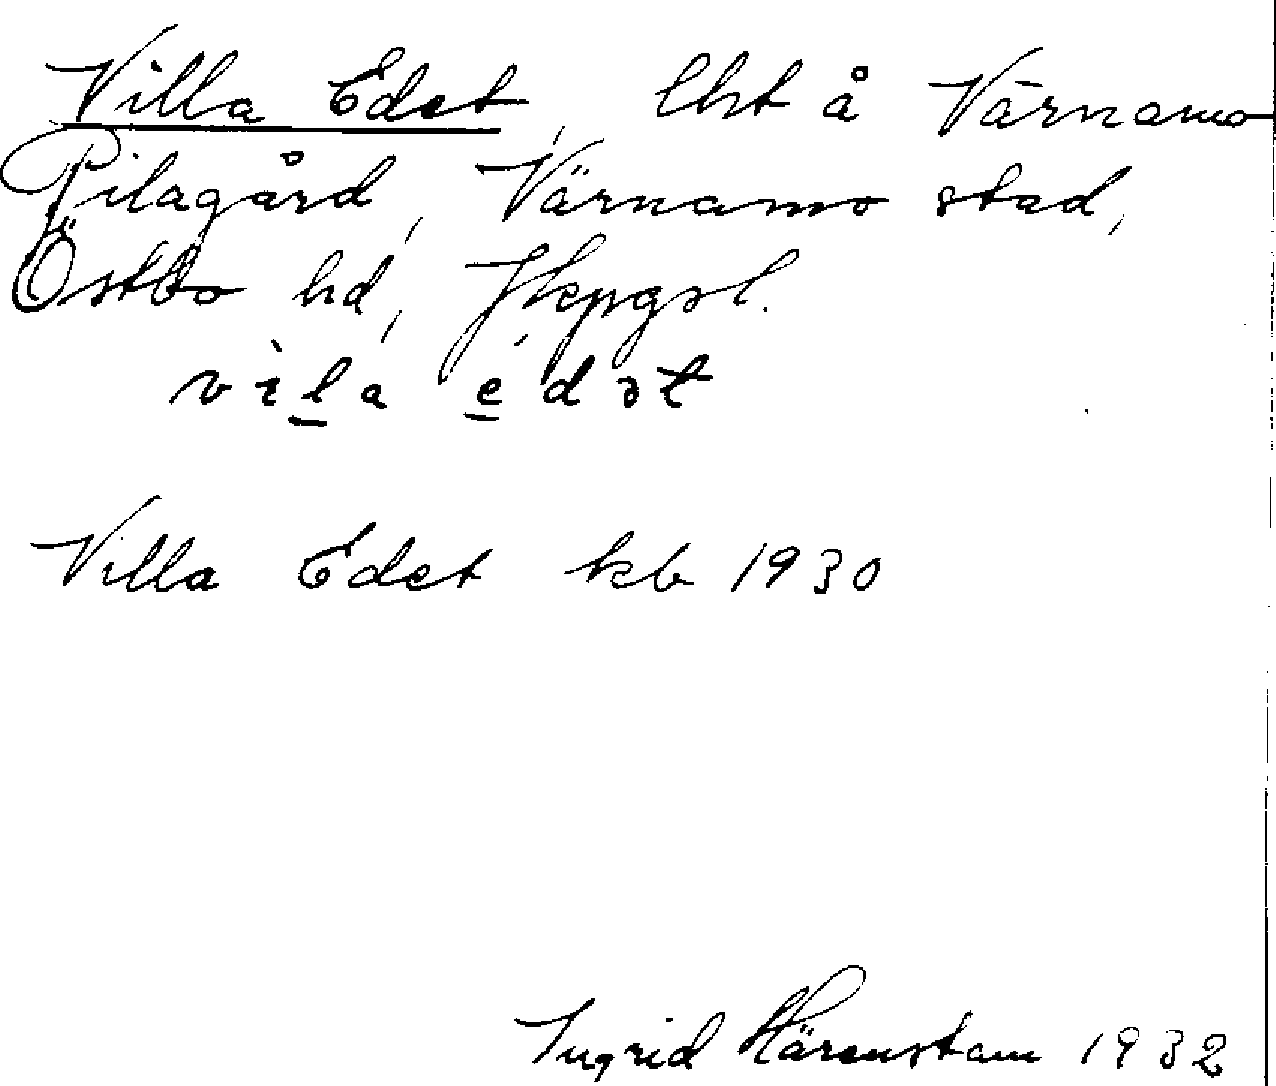 Villa Edet, lht å Värnamo
Pilagård, Värnamo stad,
Östbo hd, Jkpgsl.
vìla édət
Villa Edet kb 1930
Ingrid Härenstam 1932